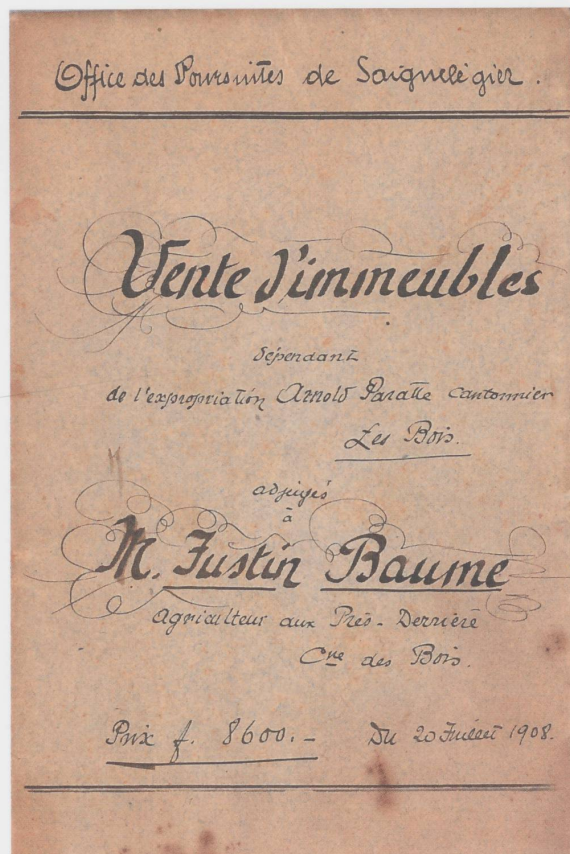 Office des Poursuites de Saignelégier.
Vente d'immeubles
dépendant
de l'expropriation Arnold Paratte cantonnier
Les Bois.
adjugés
à
M. Justin Baume
agriculteur aux Prés-Derrière
Cne des Bois.
Prix f. 8600.- Du 20 Juillet 1908.